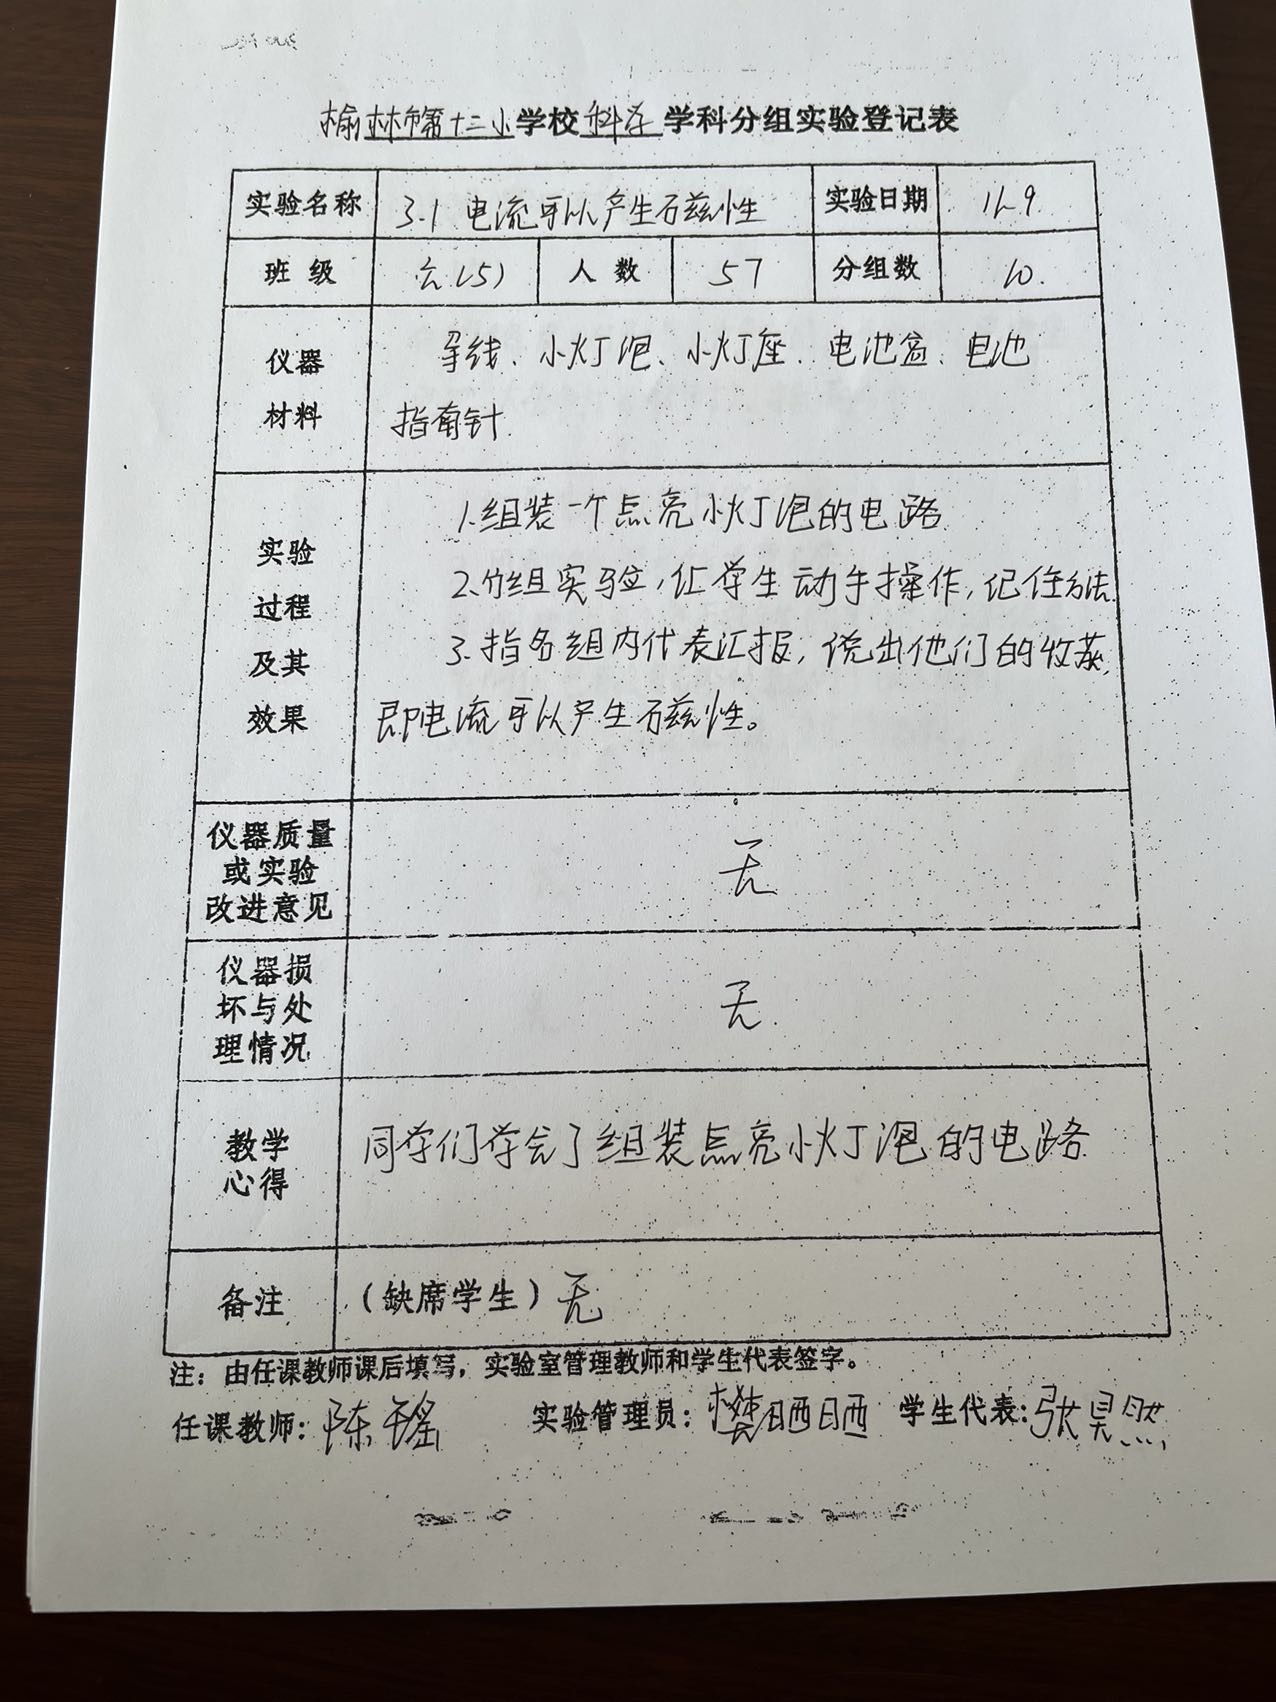 榆林市第十二小学校科学学科分组实验登记表
实验名称 3.1 电流可以产生磁性 实验日期 11.9
班级 六(5) 人数 57 分组数 10.
仪器材料 导线、小灯泡、小灯座、电池盒、电池
指南针
实验过程及其效果 1.组装一个点亮小灯泡的电路
2.分组实验,让学生动手操作,记住方法.
3.指名组内代表汇报,说出他们的收获,
即电流可以产生磁性。
仪器质量或实验改进意见 无
仪器损坏与处理情况 无
教学心得 同学们学会了组装点亮小灯泡的电路
备注 (缺席学生)无
注:由任课教师课后填写,实验室管理教师和学生代表签字。
任课教师:陈 实验管理员:樊晒晒 学生代表:张昊然